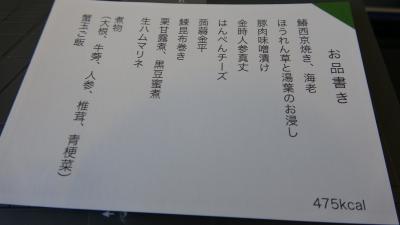 お品書き
鰆西京焼き、海老
ほうれん草と湯葉のお浸し
豚肉味噌漬け
金時人参真丈
はんぺんチーズ
蒟蒻金平
鰊昆布巻き
栗甘露煮、黒豆蜜煮
生ハムマリネ
煮物
(大根、牛蒡、人参、椎茸、青梗菜)
蟹玉ご飯
475kcal